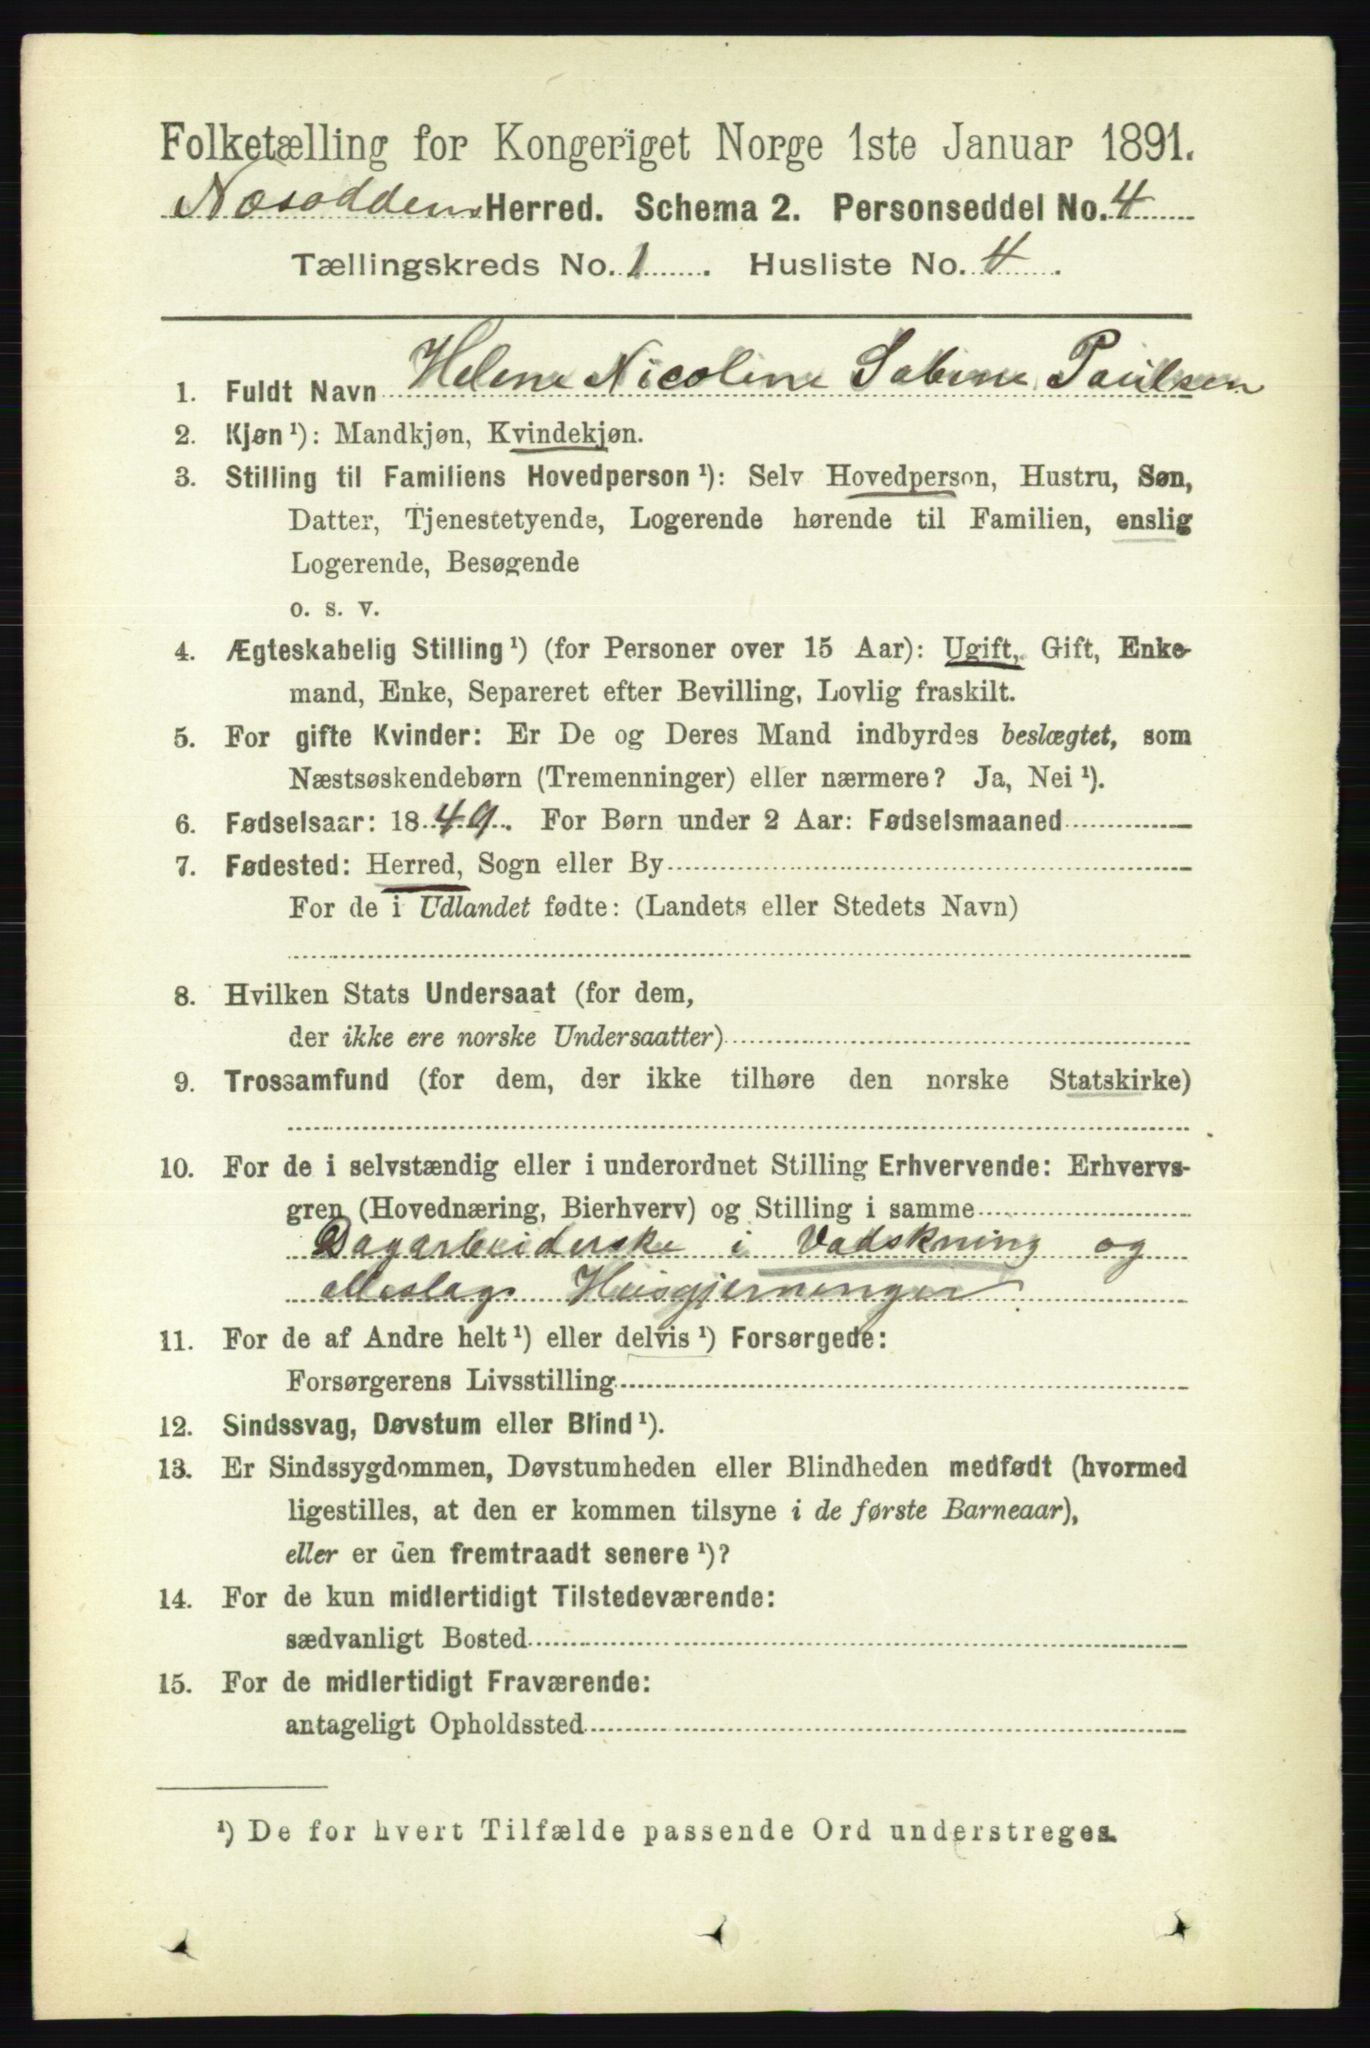 Folketælling for Kongeriget Norge 1ste Januar 1891.
Næsoddens Herred. Schema 2. Personseddel No. 4
Tællingskreds No. 1. Husliste No. 4.
1. Fuldt Navn Helene Nicoline Sabine Paulsen
2. Kjøn¹): Mandkjøn, Kvindekjøn.
3. Stilling til Familiens Hovedperson¹): Selv Hovedperson, Hustru, Søn,
Datter, Tjenestetyende, Logerende hørende til Familien, enslig
Logerende, Besøgende
o. s. v.
4. Ægteskabelig Stilling¹) (for Personer over 15 Aar): Ugift, Gift, Enke-
mand, Enke, Separeret efter Bevilling, Lovlig fraskilt.
5. For gifte Kvinder: Er De og Deres Mand indbyrdes beslægtet, som
Næstsøskendebørn (Tremenninger) eller nærmere? Ja, Nei¹).
6. Fødselsaar: 1849. For Børn under 2 Aar: Fødselsmaaned
7. Fødested: Herred, Sogn eller By
For de i Udlandet fødte: (Landets eller Stedets Navn)
8. Hvilken Stats Undersaat (for dem,
der ikke ere norske Undersaatter)
9. Trossamfund (for dem, der ikke tilhøre den norske Statskirke)
10. For de i selvstændig eller i underordnet Stilling Erhvervende: Erhvervs-
gren (Hovednæring, Bierhverv) og Stilling i samme
Dagarbeiderske i Vadskning og
alleslags Huusgjerninger.
11. For de af Andre helt¹) eller delvis¹) Forsørgede:
Forsørgerens Livsstilling
12. Sindssvag, Døvstum eller Blind¹).
13. Er Sindssygdommen, Døvstumheden eller Blindheden medfødt (hvormed
ligestilles, at den er kommen tilsyne i de første Barneaar),
eller er den fremtraadt senere¹)?
14. For de kun midlertidigt Tilstedeværende:
sædvanligt Bosted
15. For de midlertidigt Fraværende:
antageligt Opholdssted
¹) De for hvert Tilfælde passende Ord understreges.